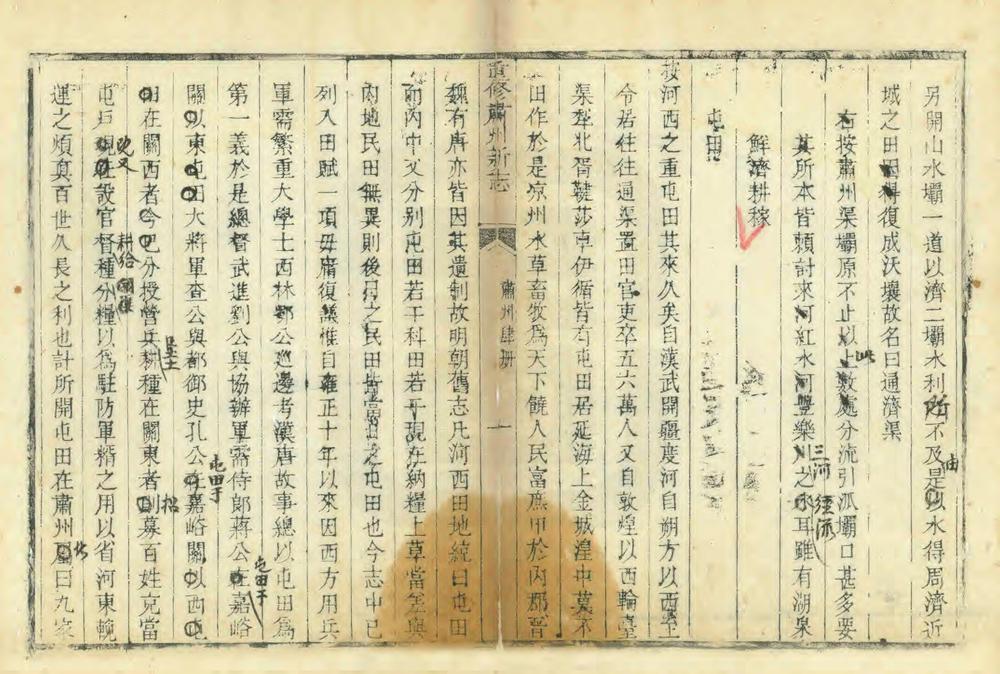 另開山水壩一道以濟二壩水利所不及是以水得周濟近
城之田因得復成沃壤故名曰通濟渠
右按肅州渠壩原不止以上數處分流引派壩口甚多要
其所本皆頼討來河紅水河豐樂川之水耳雖有湖泉
鮮濟耕稼
屯田
按河西之重屯田其來久矣自漢武開疆度河自朔方以西至
令居往往通渠置田官吏卒五六萬人又自敦煌以西輪臺
渠犂北胥鞬莎車伊循皆有屯田居延海上金城湟中莫不
田作於是凉州水草畜牧為天下饒人民富庶甲於內郡晉
重修肅州新志
肅州肆册
一
魏有唐亦皆因其遺制故明朝舊志凡河西田地統曰屯田
而內中又分别屯田若干科田若干現在納糧上草當差與
內地民田無異則後日之民田皆當日之屯田也今志中已
列入田賦一項毋庸復議惟自雍正十年以來因西方用兵
軍需繁重大學士西林鄂公巡邊考漢唐故事總以屯田為
第一義於是總督武進劉公與協辦軍需侍郎蔣公在嘉峪
關以東屯田大將軍查公與都御史孔公在嘉峪關以西屯
田在關西者今已分授營兵耕種在關東者則募百姓克當
屯戶現在設官督種分糧以為駐防軍糈之用以省河東輓
運之煩真百世久長之利也計所開屯田在肅州屬曰九家
此
由
三河
經流
屯田于
屯田于
招
耕給